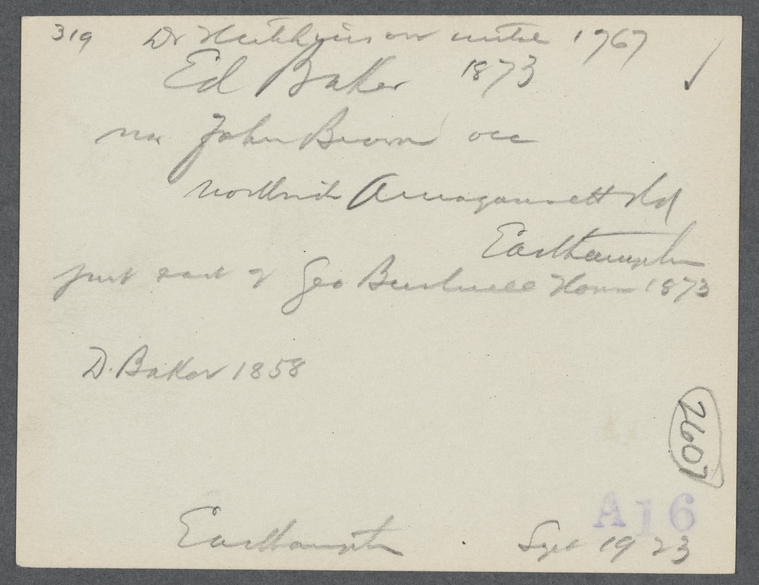 319 Dr Hutchinson 1767
Ed Baker 1873
now John Brown occ
north side Amagansett Rd
Easthampton
just east of Geo Bushnell House 1873
D. Baker 1858
2607
A16
Easthampton Sept 1923